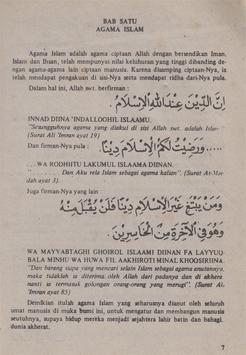 BAB SATU
AGAMA ISLAM
Agama Islam adalah agama ciptaan Allah dengan bersendikan Iman,
Islam dan Ihsan, telah mempunyai nilai keluhuran yang tinggi dibanding de-
ngan agama-agama lain ciptaan manusia. Karena disamping ciptaan-Nya, ia
telah mendapat pengakuan di sisi-Nya serta mendapat ridha dari-Nya pula.
Dalam hal ini, Allah swt. berfirman :
إِنَّ الدِّيْنَ عِنْدَ اللهِ الْإِسْلَامُ.
INNAD DIINA 'INDALLOOHIL ISLAAMU.
"Sesungguhnya agama yang diakui di sisi Allah swt. adalah Islam"
(Surat Ali 'Imran ayat 19)
Dan firman-Nya pula :
..... وَرَضِيْتُ لَكُمُ الْإِسْلَامَ دِيْنًا.
. . . . . WA RODHIITU LAKUMUL ISLAAMA DIINAN.
". . . . . Dan Aku rela Islam sebagai agama kalian". (Surat Al-Mai-
dah ayat 3).
Juga firman-Nya yang lain :
وَمَنْ يَبْتَغِ غَيْرَ الْإِسْلَامِ دِيْنًا فَلَنْ يُقْبَلَ مِنْهُ
وَهُوَ فِى الْآخِرَةِ مِنَ الْخَاسِرِيْنَ.
WA MAYYABTAGHI GHOIROL ISLAAMI DIINAN FA LAYYUQ-
BALA MINHU WA HUWA FIL AAKHIROTI MINAL KHOOSIRIINA.
"Dan barang supa yang mencari selain Islam sebagai agama anutannya,
maka tidaklah ia diterima oleh Allah daripadanya, dan di akhirat
nanti ia termasuk golongan orang-orang yang merugi". (Surat Ali-
'Imran ayat 85)
Demikian itulah agama Islam yang seharusnya dianut oleh seluruh
umat manusia di muka bumi ini, untuk mengatur dan membangun manusia
seutuhnya, supaya hidup mereka menjadi sejahtera lahir batin dan bahagi
dunia akherat.
7